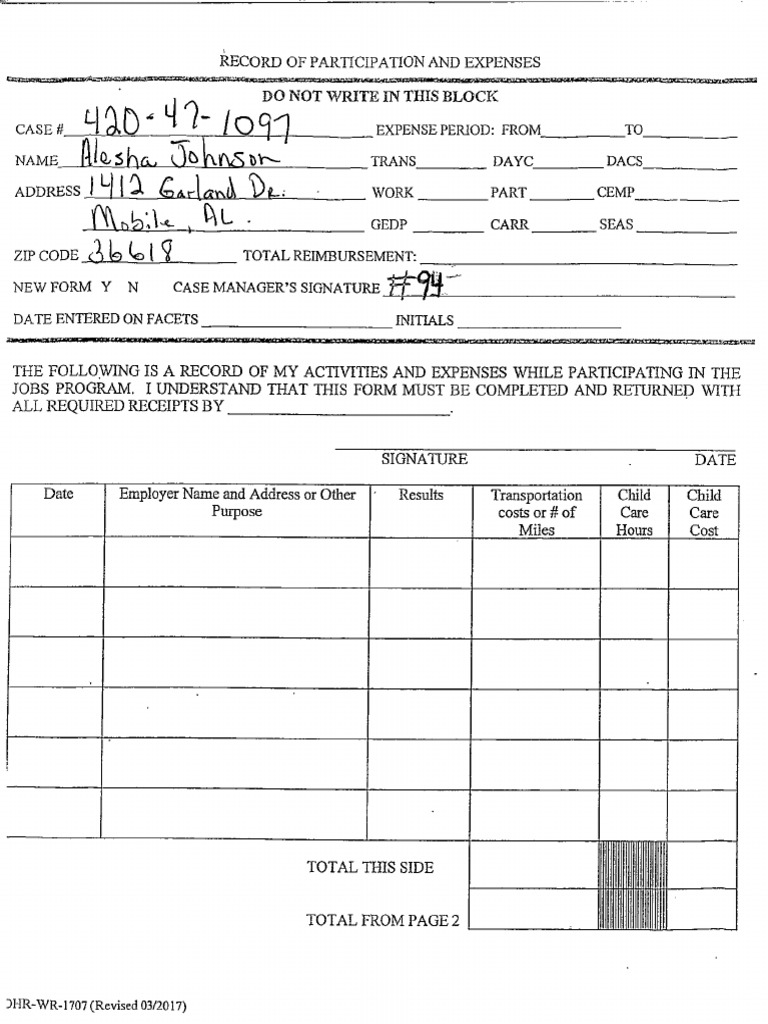 RECORD OF PARTICIPATION AND EXPENSES
DO NOT WRITE IN THIS BLOCK
CASE # 420-47-1097 EXPENSE PERIOD: FROM TO
NAME Alesha Johnson TRANS DAYC DACS
ADDRESS 1412 Garland Dr. WORK PART CEMP
Mobile, AL. GEDP CARR SEAS
ZIP CODE 36618 TOTAL REIMBURSEMENT:
NEW FORM Y N CASE MANAGER'S SIGNATURE #94
DATE ENTERED ON FACETS INITIALS
THE FOLLOWING IS A RECORD OF MY ACTIVITIES AND EXPENSES WHILE PARTICIPATING IN THE
JOBS PROGRAM. I UNDERSTAND THAT THIS FORM MUST BE COMPLETED AND RETURNED WITH
ALL REQUIRED RECEIPTS BY .
SIGNATURE DATE
Date Employer Name and Address or Other Results Transportation Child Child
Purpose costs or # of Care Care
Miles Hours Cost
TOTAL THIS SIDE
TOTAL FROM PAGE 2
DHR-WR-1707 (Revised 03/2017)